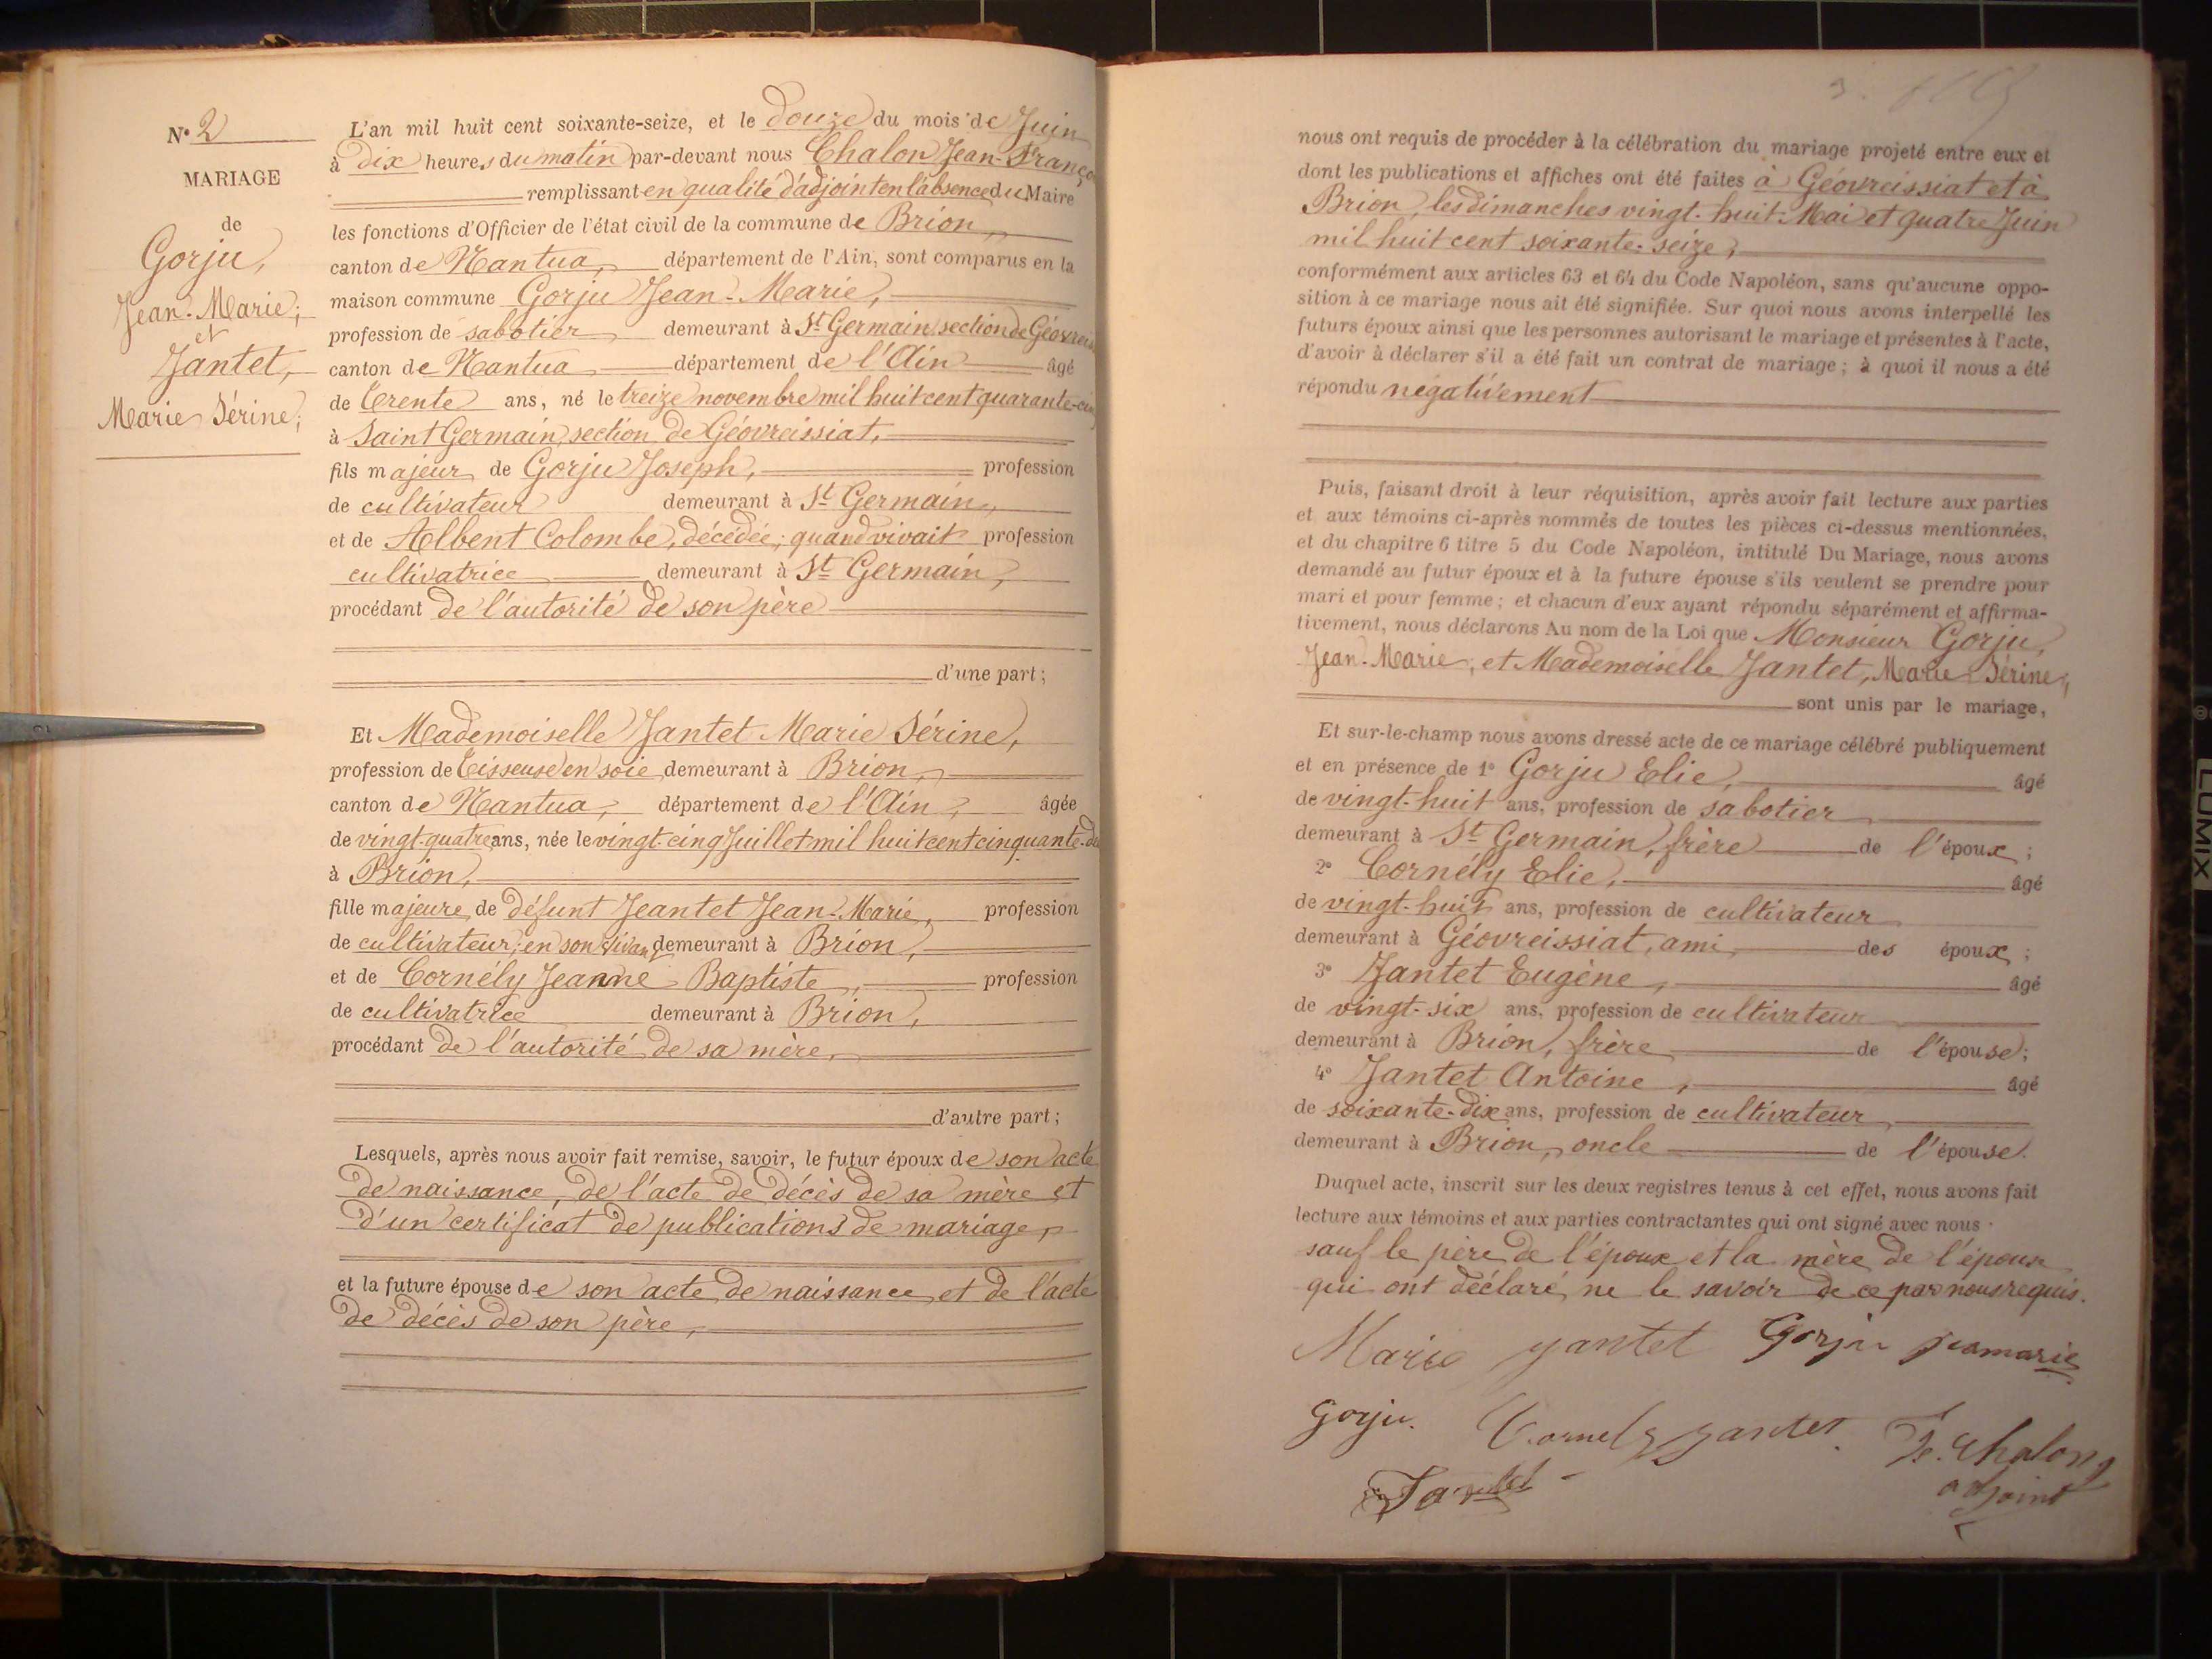 N° 2
MARIAGE
de
Gorju,
Jean-Marie;
et
Jantet,
Marie Sérine;
L'an mil huit cent soixante-seize, et le douze du mois de Juin
à dix heures du matin par-devant nous Chalon Jean-Franço
remplissant en qualité d'adjoint en l'absence du Maire
les fonctions d'Officier de l'état civil de la commune de Brion,
canton de Nantua, département de l'Ain, sont comparus en la
maison commune Gorju Jean-Marie,
profession de sabotier demeurant à St Germain, section de Géovreiss
canton de Nantua département de l'Ain âgé
de trente ans, né le treize novembre mil huit cent quarante-cinq
à Saint Germain, section de Géovreissiat,
fils majeur de Gorju Joseph, profession
de cultivateur demeurant à St Germain,
et de Albent Colombe, décédée; quand vivait profession
cultivatrice demeurant à St Germain,
procédant de l'autorité de son père
d'une part;
Et Mademoiselle Jantet Marie Sérine,
profession de tisseuse en soie demeurant à Brion,
canton de Nantua, département de l'Ain, âgée
de vingt-quatre ans, née le vingt-cinq Juillet mil huit cent cinquante-de
à Brion,
fille majeure de défunt Jeantet Jean-Marie, profession
de cultivateur, en son vivant demeurant à Brion,
et de Cornély Jeanne Baptiste, profession
de cultivatrice demeurant à Brion,
procédant de l'autorité de sa mère,
d'autre part;
Lesquels, après nous avoir fait remise, savoir, le futur époux de son acte
de naissance, de l'acte de décès de sa mère et
d'un certificat de publications de mariage,
et la future épouse de son acte de naissance et de l'acte
de décès de son père,
nous ont requis de procéder à la célébration du mariage projeté entre eux et
dont les publications et affiches ont été faites à Géovreissiat et à
Brion, les dimanches vingt-huit Mai et quatre Juin
mil huit cent soixante-seize,
conformément aux articles 63 et 64 du Code Napoléon, sans qu'aucune oppo-
sition à ce mariage nous ait été signifiée. Sur quoi nous avons interpellé les
futurs époux ainsi que les personnes autorisant le mariage et présentes à l'acte,
d'avoir à déclarer s'il a été fait un contrat de mariage; à quoi il nous a été
répondu négativement
Puis, faisant droit à leur réquisition, après avoir fait lecture aux parties
et aux témoins ci-après nommés de toutes les pièces ci-dessus mentionnées,
et du chapitre 6 titre 5 du Code Napoléon, intitulé Du Mariage, nous avons
demandé au futur époux et à la future épouse s'ils veulent se prendre pour
mari et pour femme; et chacun d'eux ayant répondu séparément et affirma-
tivement, nous déclarons Au nom de la Loi que Monsieur Gorju,
Jean-Marie, et Mademoiselle Jantet, Marie Sérine,
sont unis par le mariage,
Et sur-le-champ nous avons dressé acte de ce mariage célébré publiquement
et en présence de 1° Gorju Elie, âgé
de vingt-huit ans, profession de sabotier
demeurant à St Germain, frère de l'époux;
2° Cornély Elie, âgé
de vingt-huit ans, profession de cultivateur
demeurant à Géovreissiat, ami des époux;
3° Jantet Eugène, âgé
de vingt-six ans, profession de cultivateur
demeurant à Brion, frère de l'épouse;
4° Jantet Antoine, âgé
de soixante-dix ans, profession de cultivateur
demeurant à Brion, oncle de l'épouse.
Duquel acte, inscrit sur les deux registres tenus à cet effet, nous avons fait
lecture aux témoins et aux parties contractantes qui ont signé avec nous
sauf le père de l'époux et la mère de l'épouse
qui ont déclaré ne le savoir de ce par nous requis.
Marie yantet Gorju jeamarie
gorju. Cornely yantet. Chalon
adjoint
Jantet
LUMIX